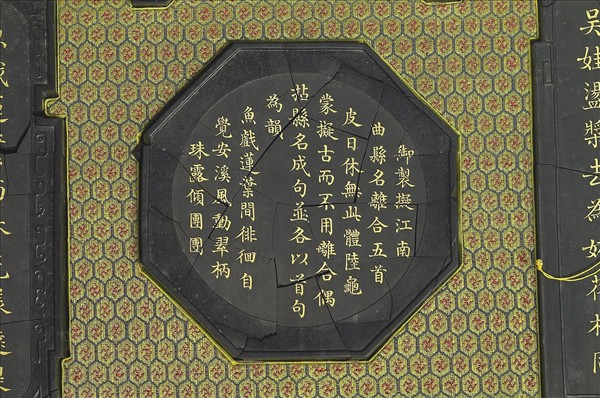 吳娃盪槳去為好花相
御製擬江南
曲縣名離合五首
皮日休無此體陸龜
蒙擬古而不用離合偶
拈縣名成句並各以首句
為韻
魚戲蓮葉間徘徊自
覺安溪風動翠柄
珠露傾團團